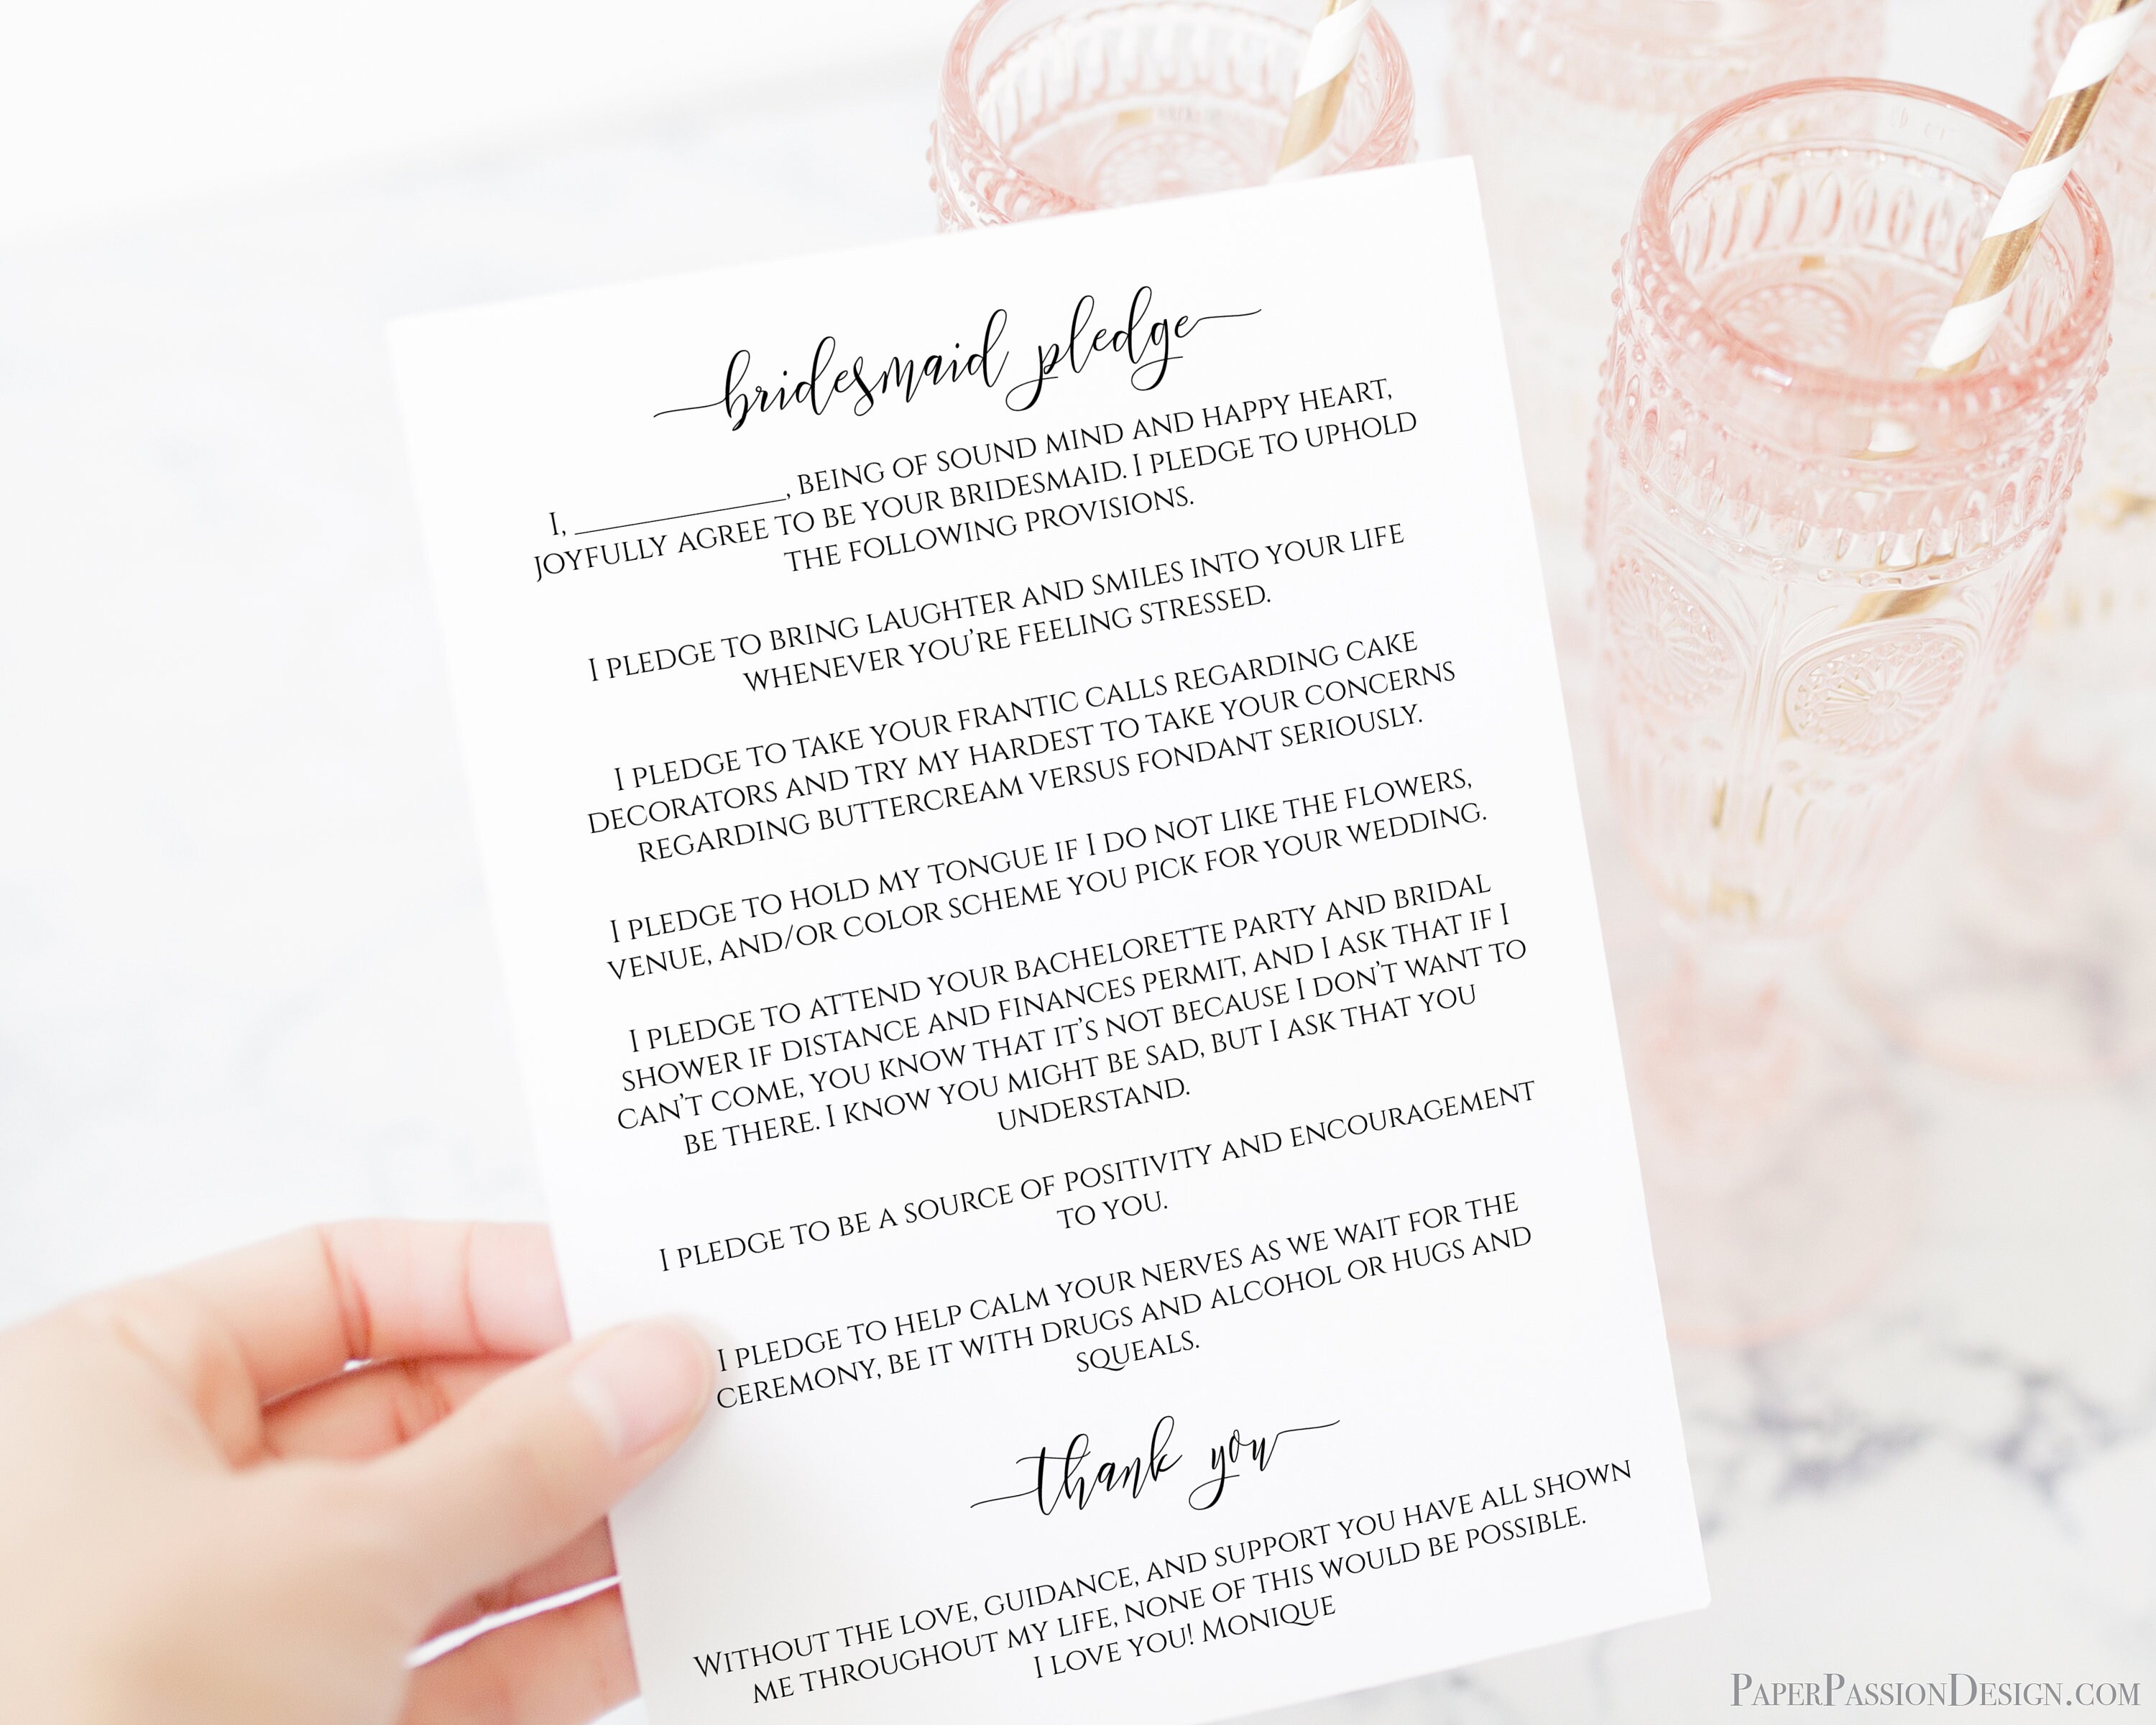 bridesmaid pledge
I, ______________, BEING OF SOUND MIND AND HAPPY HEART,
JOYFULLY AGREE TO BE YOUR BRIDESMAID. I PLEDGE TO UPHOLD
THE FOLLOWING PROVISIONS.
I PLEDGE TO BRING LAUGHTER AND SMILES INTO YOUR LIFE
WHENEVER YOU'RE FEELING STRESSED.
I PLEDGE TO TAKE YOUR FRANTIC CALLS REGARDING CAKE
DECORATORS AND TRY MY HARDEST TO TAKE YOUR CONCERNS
REGARDING BUTTERCREAM VERSUS FONDANT SERIOUSLY.
I PLEDGE TO HOLD MY TONGUE IF I DO NOT LIKE THE FLOWERS,
VENUE, AND/OR COLOR SCHEME YOU PICK FOR YOUR WEDDING.
I PLEDGE TO ATTEND YOUR BACHELORETTE PARTY AND BRIDAL
SHOWER IF DISTANCE AND FINANCES PERMIT, AND I ASK THAT IF I
CAN'T COME, YOU KNOW THAT IT'S NOT BECAUSE I DON'T WANT TO
BE THERE. I KNOW YOU MIGHT BE SAD, BUT I ASK THAT YOU
UNDERSTAND.
I PLEDGE TO BE A SOURCE OF POSITIVITY AND ENCOURAGEMENT
TO YOU.
I PLEDGE TO HELP CALM YOUR NERVES AS WE WAIT FOR THE
CEREMONY, BE IT WITH DRUGS AND ALCOHOL OR HUGS AND
SQUEALS.
thank you
WITHOUT THE LOVE, GUIDANCE, AND SUPPORT YOU HAVE ALL SHOWN
ME THROUGHOUT MY LIFE, NONE OF THIS WOULD BE POSSIBLE.
I LOVE YOU! MONIQUE
PAPERPASSIONDESIGN.COM